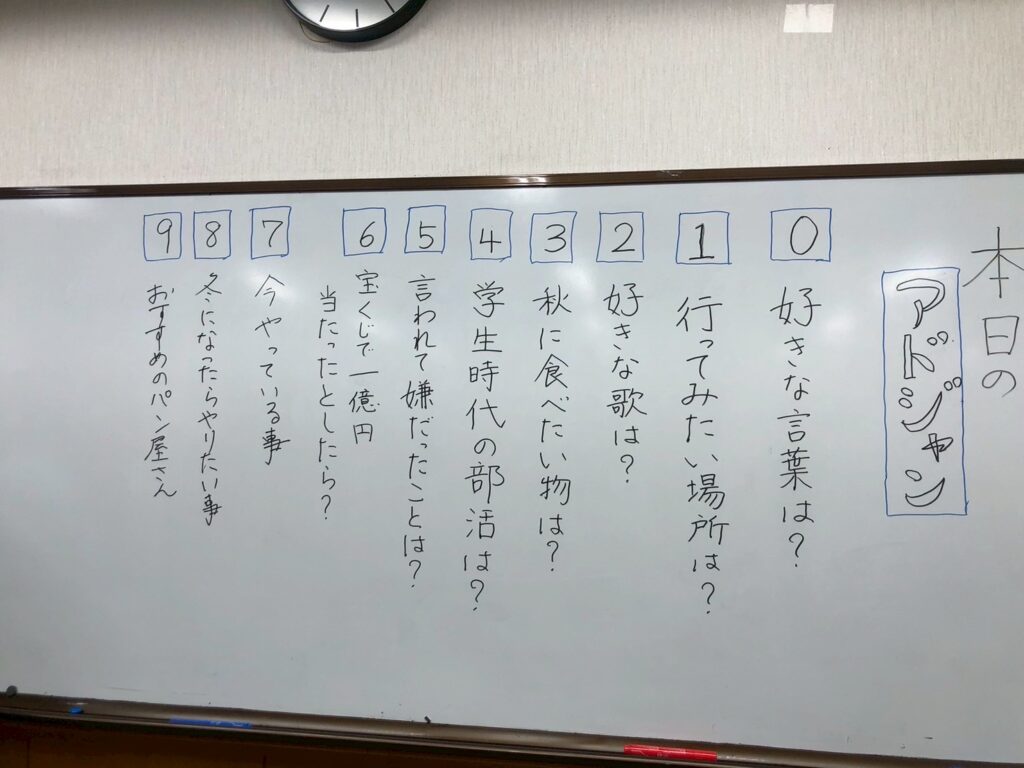 本日の
アドジャン
0 好きな言葉は?
1 行ってみたい場所は?
2 好きな歌は?
3 秋に食べたい物は?
4 学生時代の部活は?
5 言われて嫌だったことは?
6 宝くじで一億円
当たったとしたら?
7 今やっている事
8 冬になったらやりたい事
9 おすすめのパン屋さん